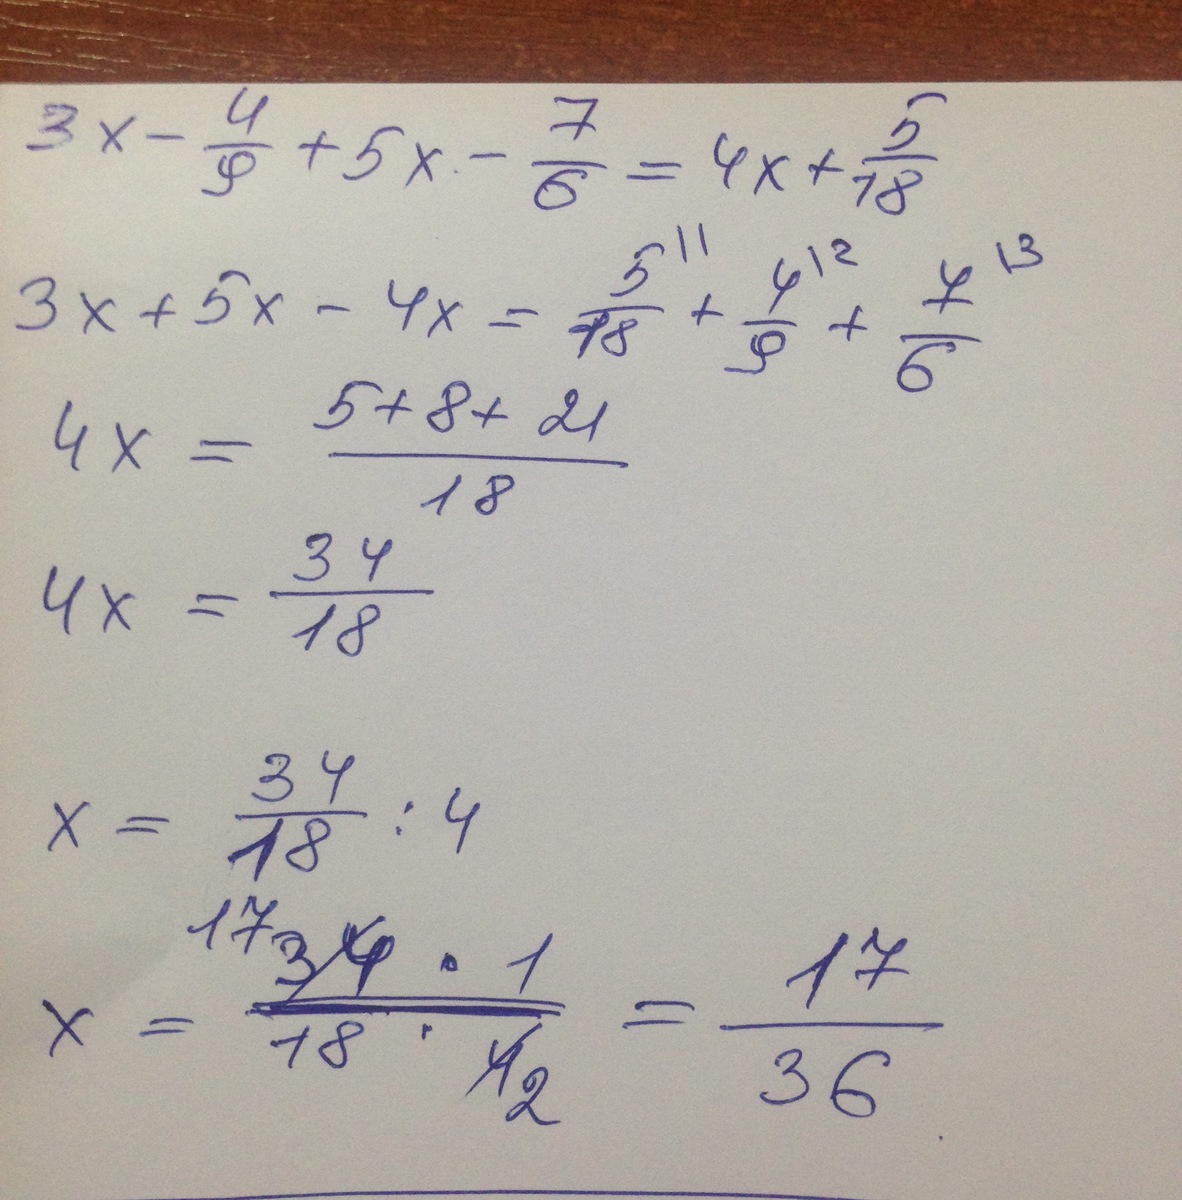 3x - 4/9 + 5x - 7/6 = 4x + 5/18
3x + 5x - 4x = 5\1/18 + 4\2/9 + 7\3/6
4x = 5+8+21/18
4x = 34/18
x = 34/18 : 4
x = 17 34 · 1/18 · 4 2 = 17/36